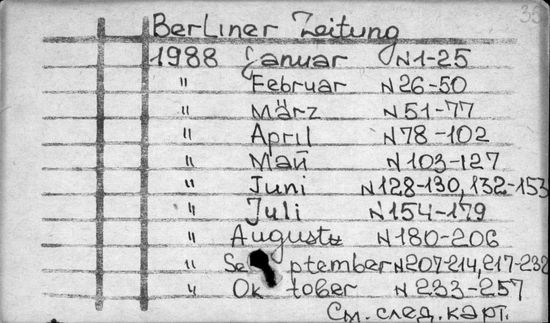 35
Berliner Zeitung
1988 Januar N 1-25
" Februar N 26-50
" März N 51-77
" April N 78-102
" Май N 103-127
" Juni N 128-130, 132-153
" Juli N 154-179
" August N 180-206
" September N 207-214, 217-232
" Oktober N 233-257
См. след. карт.